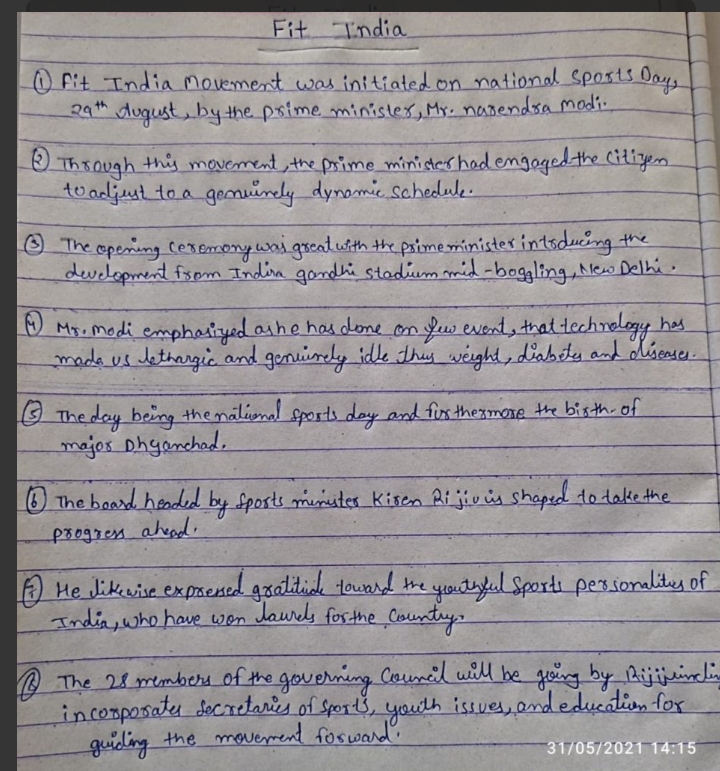 Fit India
① Fit India Movement was initiated on national sports Day,
29th August, by the prime minister, Mr. narendra modi.
② Through this movement, the prime minister had engaged the citizen
to adjust to a genuinely dynamic schedule.
③ The opening ceremony was great with the prime minister introducing the
development from Indira gandhi stadium mid-boggling, New Delhi.
④ Mr. modi emphasized as he has done on few event, that technology has
made us lethargic and genuinely idle thus weight, diabetes and diseases.
⑤ The day being the national sports day and furthermore the birth of
major Dhyanchad.
⑥ The board headed by sports minister Kiren Rijiu is shaped to take the
progress ahead.
⑦ He likewise expressed gratitude toward the youthful sports personalities of
India, who have won laurels for the Country.
⑧ The 28 members of the governing Council will be going by
incorporates secretaries of sports, youth issues, and education for
guiding the movement forward.
31/05/2021 14:15